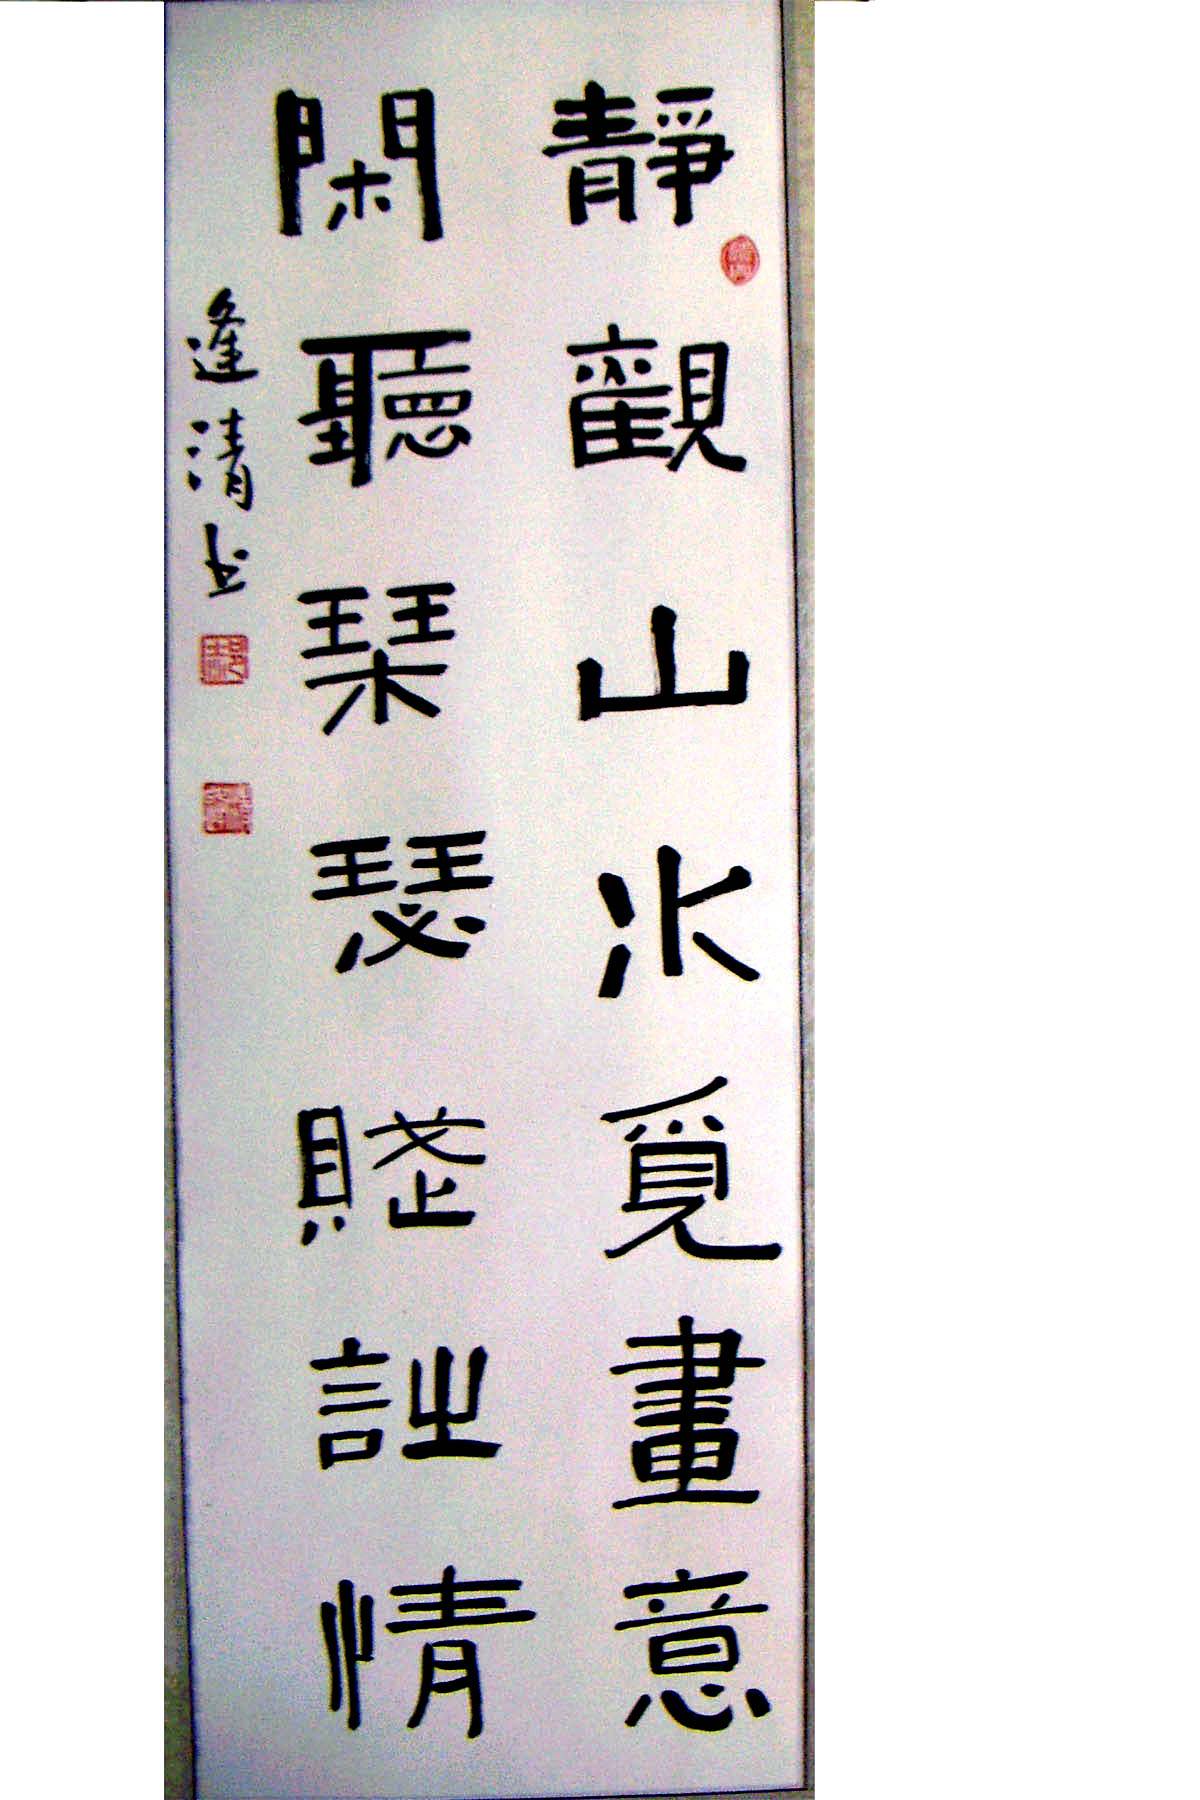 靜觀山水覓畫意
閑聽琹瑟賦詩情
逢清书